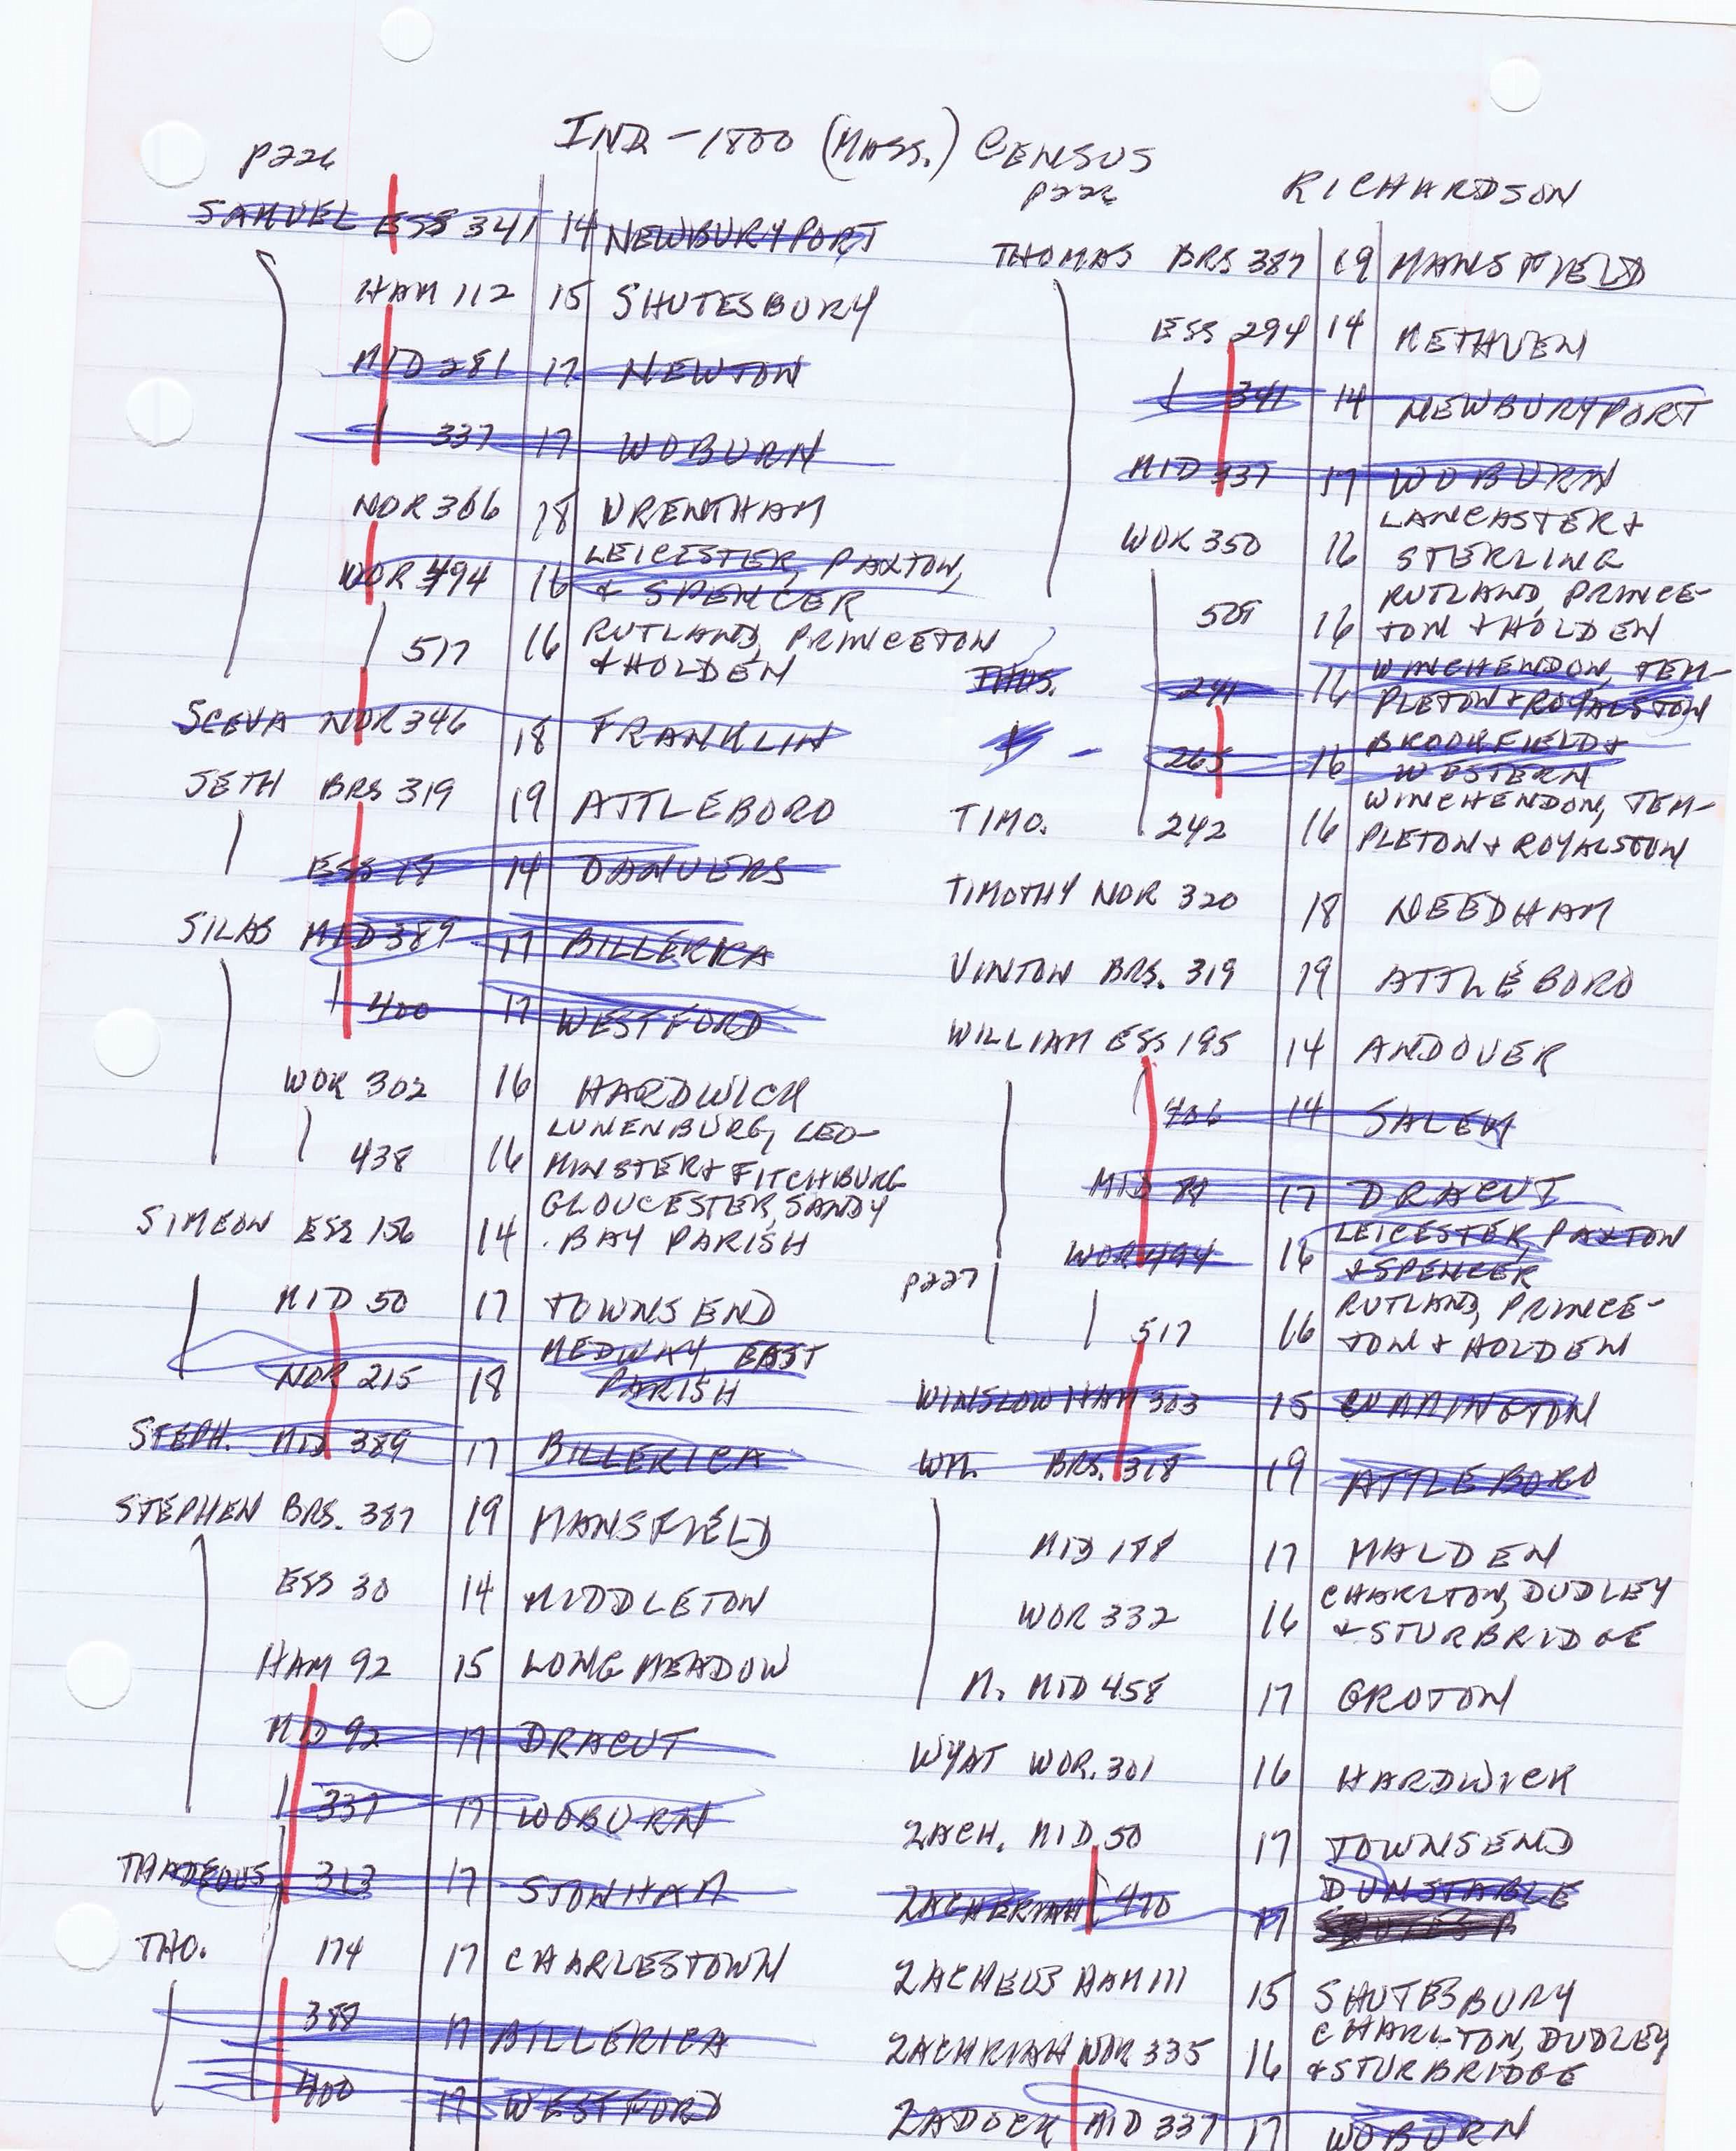 IND - 1800 (MASS.) CENSUS
p226
SAMUEL ESS 341 14 NEWBURYPORT
HAM 112 15 SHUTESBURY
MID 281 17 NEWTON
337 17 WOBURN
NOR 366 18 WRENTHAM
WOR 494 16 LEICESTER, PAXTON,
& SPENCER
517 16 RUTLAND, PRINCETON
& HOLDEN
SCEVA NOR 346 18 FRANKLIN
SETH BRS 319 19 ATTLEBORO
ESS 14 DANVERS
SILAS MID 389 17 BILLERICA
400 17 WESTFORD
WOR 302 16 HARDWICK
438 16 LUNENBURG, LEO-
MINSTER & FITCHBURG
SIMEON ESS 156 14 GLOUCESTER, SANDY
BAY PARISH
MID 50 17 TOWNSEND
NOR 215 18 MEDWAY, EAST
PARISH
STEPH. MID 389 17 BILLERICA
STEPHEN BRS. 387 19 MANSFIELD
ESS 30 14 MIDDLETON
HAM 92 15 LONGMEADOW
MID 92 17 DRACUT
337 17 WOBURN
THADEOUS 313 17 STONHAM
THO. 174 17 CHARLESTOWN
388 17 BILLERICA
400 17 WESTFORD
p226 RICHARDSON
THOMAS BRS 387 19 MANSFIELD
ESS 294 14 METHUEN
341 14 NEWBURYPORT
MID 337 17 WOBURN
WOR 350 16 LANCASTER &
STERLING
509 16 RUTLAND, PRINCE-
TON & HOLDEN
THOS. 241 16 WINCHENDON, TEM-
PLETON & ROYALSTON
265 16 BROOKFIELD &
WESTERN
TIMO. 242 16 WINCHENDON, TEM-
PLETON & ROYALSTON
TIMOTHY NOR 320 18 NEEDHAM
VINTON BRS. 319 19 ATTLEBORO
WILLIAM ESS 195 14 ANDOVER
406 14 SALEM
MID 17 DRACUT
WOR 494 16 LEICESTER, PAXTON
& SPENCER
p227
517 16 RUTLAND, PRINCE-
TON & HOLDEN
WINSLOW HAM 303 15 CUMMINGTON
WM. BRS. 318 19 ATTLEBORO
MID 188 17 MALDEN
WOR 332 16 CHARLTON, DUDLEY
& STURBRIDGE
M. MID 458 17 GROTON
WYAT WOR. 301 16 HARDWICK
ZACH. MID 50 17 TOWNSEND
ZACHERIAH 410 17 DUNSTABLE
ZACHEUS HAM 111 15 SHUTESBURY
ZACHRIAH WOR 335 16 CHARLTON, DUDLEY
& STURBRIDGE
ZADOCK MID 337 17 WOBURN